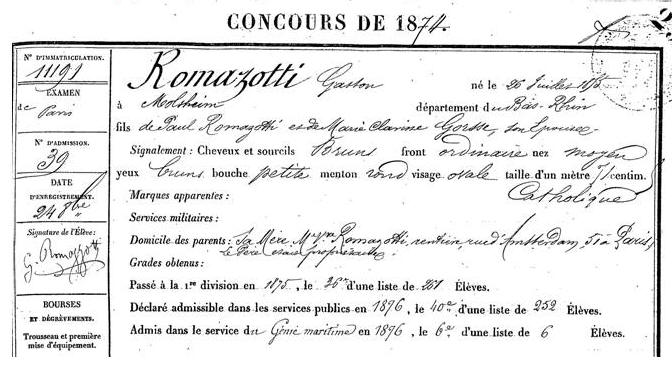 CONCOURS DE 1874.
N° D'IMMATRICULATION.
11191
EXAMEN
de Paris
N° D'ADMISSION.
39
DATE
D'ENREGISTREMENT.
24 8bre
Signature de l'Élève:
G. Romazotti
BOURSES
ET DÉGRÈVEMENTS.
Trousseau et première
mise d'équipement.
Romazotti Gaston né le 26 Juillet 1855
à Molsheim département du Bas-Rhin
fils de Paul Romazotti et de Marie Clarine Gorsse, son épouse.
Signalement: Cheveux et sourcils Bruns front ordinaire nez moyen
yeux bruns bouche petite menton rond visage ovale taille d'un mètre 71 centim.
Marques apparentes: Catholique
Services militaires:
Domicile des parents: Sa Mère Mme Vve Romazotti, rentière, rue d'Amsterdam, 51 à Paris,
Le Père était propriétaire
Grades obtenus:
Passé à la 1re division en 1875, le 26e d'une liste de 251 Élèves.
Déclaré admissible dans les services publics en 1876, le 40e d'une liste de 252 Élèves.
Admis dans le service du Génie maritime en 1876, le 6e d'une liste de 6 Élèves.